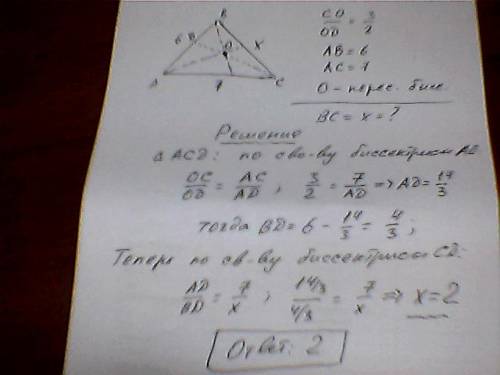 B
6 D
O
X
A
7
C
CO/OD = 3/2
AB = 6
AC = 7
O - перес. бисс.
BC = x = ?
Решение
Δ ACD: по сво-ву биссектрисы AO
OC/OD = AC/AD ; 3/2 = 7/AD => AD = 14/3
тогда BD = 6 - 14/3 = 4/3 ;
Теперь по св-ву биссектрисы CD:
AD/BD = 7/x ; 14/3 / 4/3 = 7/x => x = 2
Ответ: 2